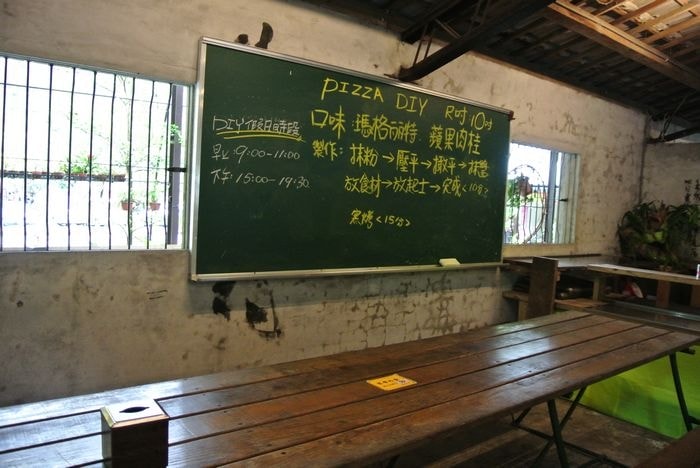 PIZZA DIY 尺吋10吋
口味：瑪格麗特．蘋果肉桂
製作：抹粉→壓平→撖平→抹醬
放食材→放起士→完成<10分>
窯烤<15分>
DIY假日時段
早上：9:00-11:00
下午：15:00-19:30